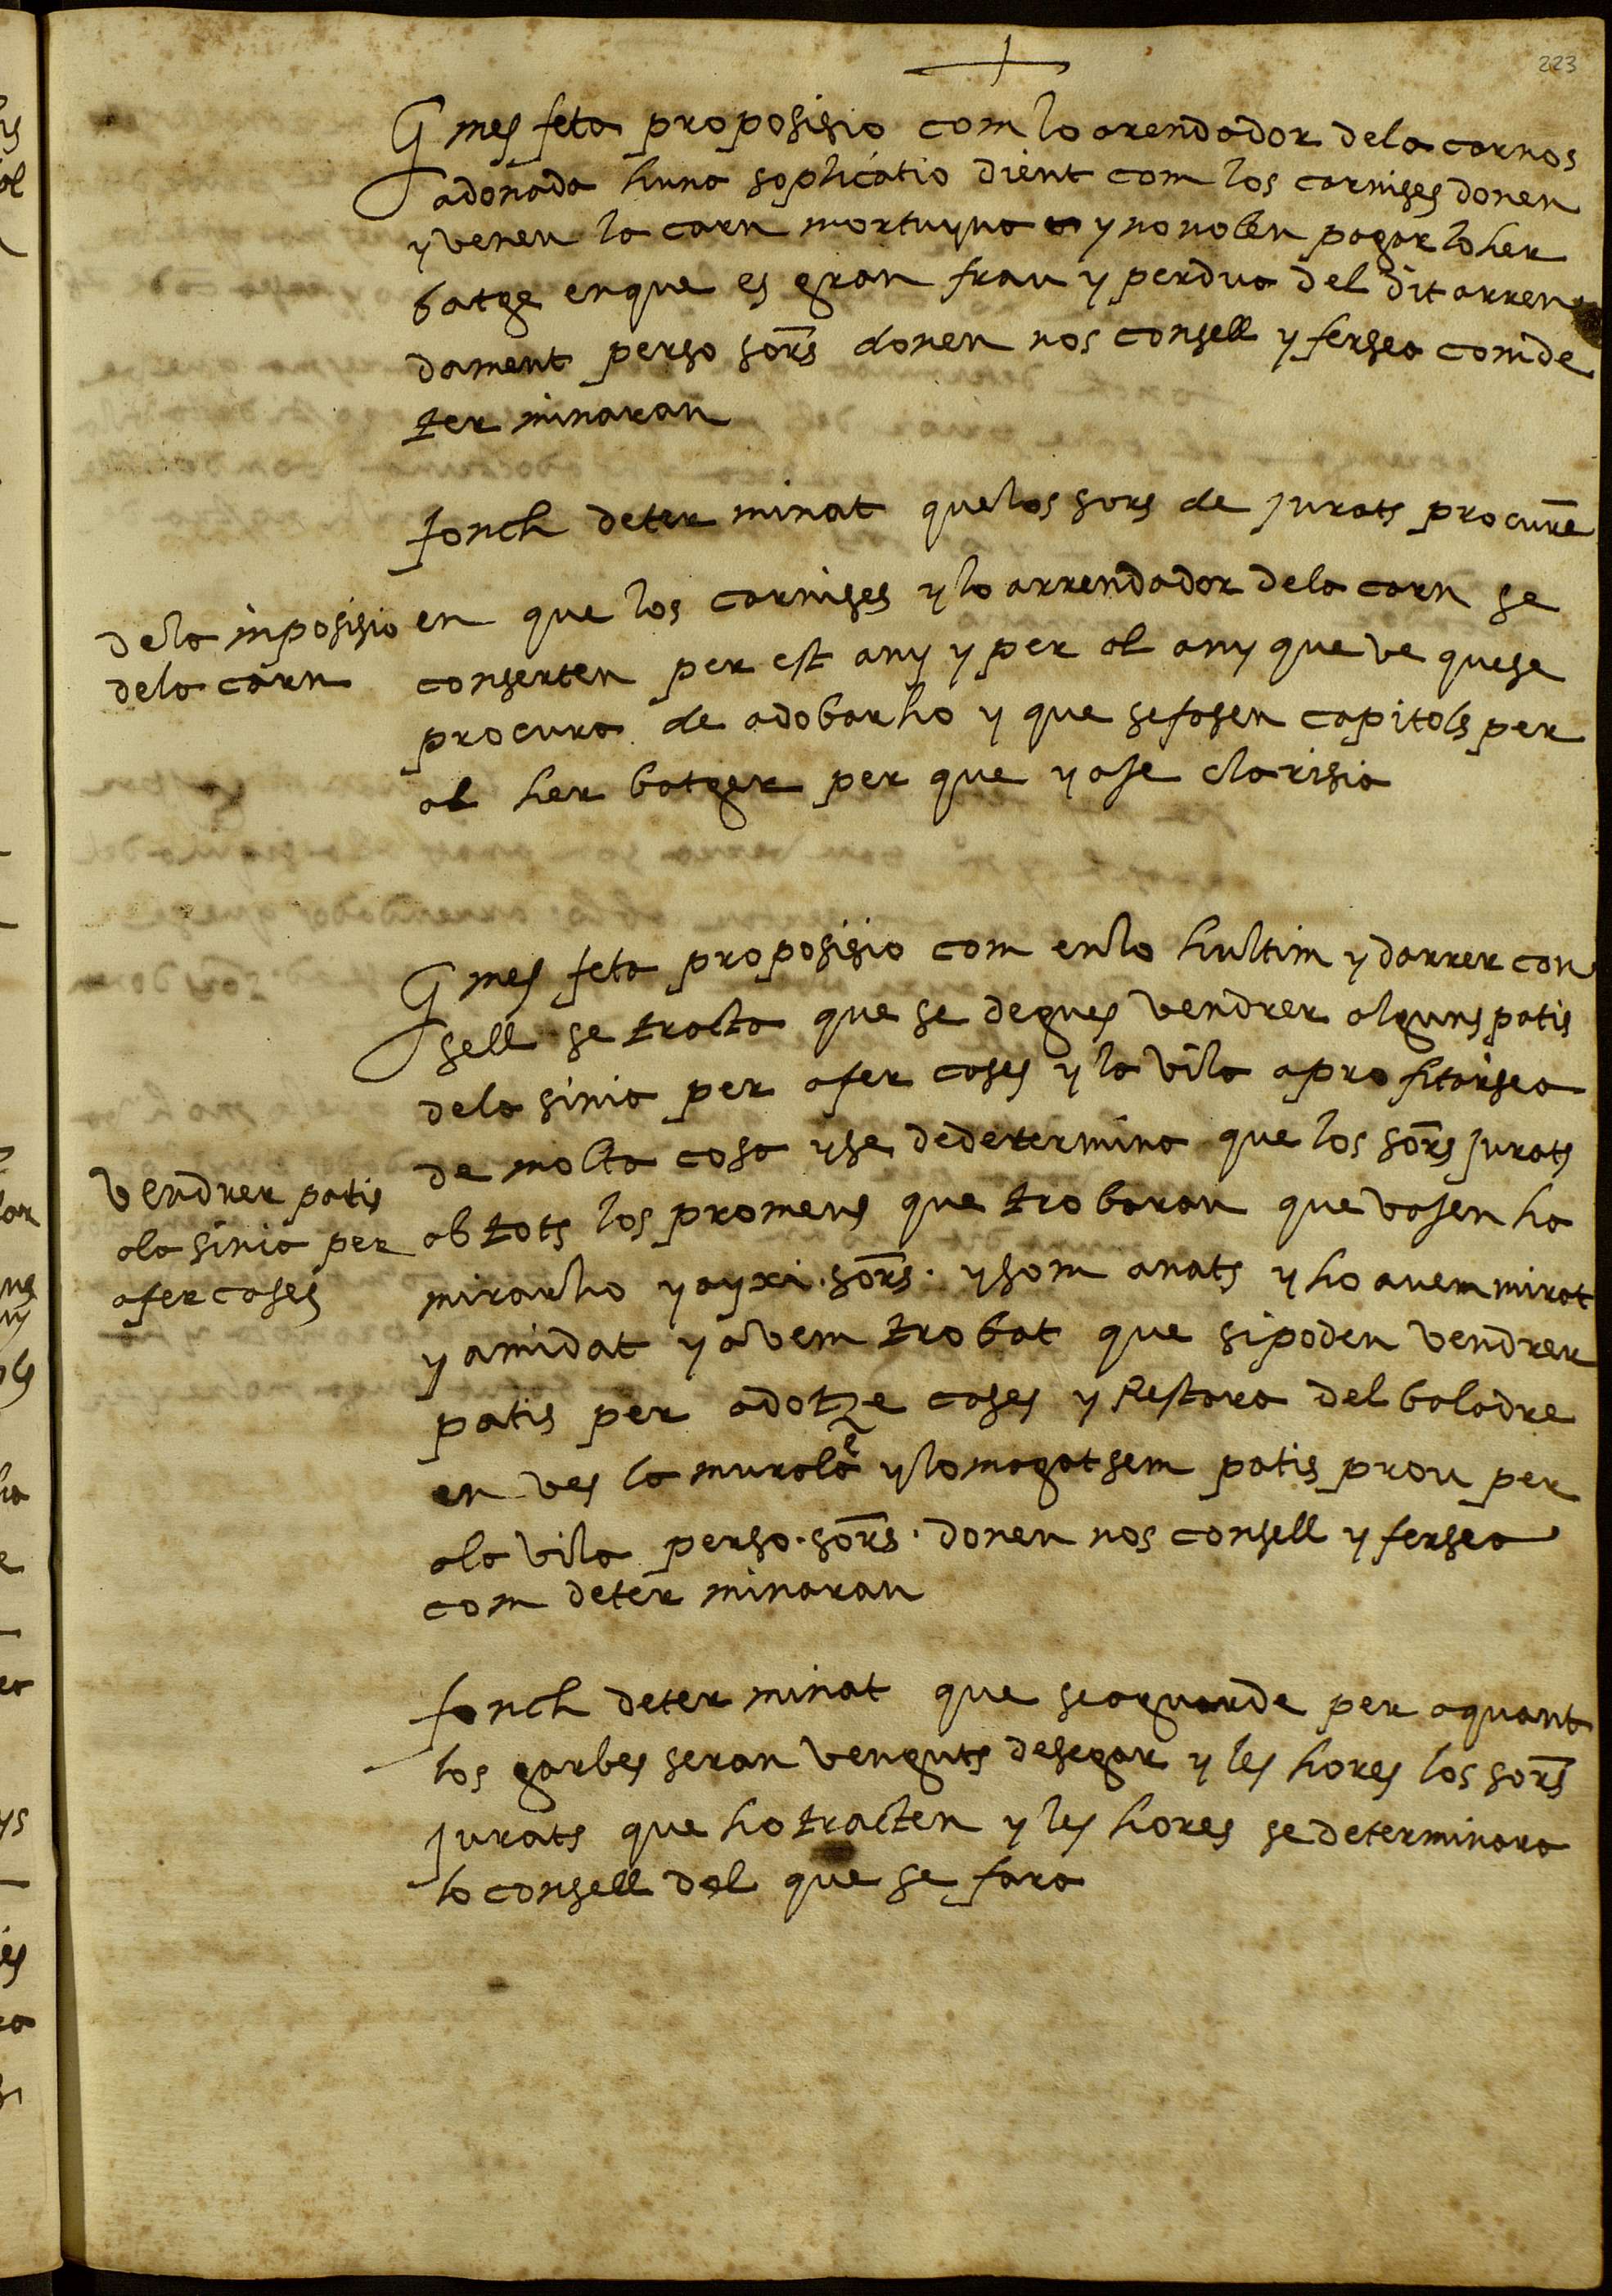 223
G mes feta proposisio com lo arendador dela carnos
adonada huna soplicatio dient com los carnises donen
y venen la carn mortuyna y no volen pagar lo her
batge enque es gran frau y perdua del dit arren
dament perso sors donen nos consell y fersea comde
ter minaran
fonch deter minat quelos sors de jurats procure
en que los carnises y lo arrendador dela carn se
dela inposisio
dela carn
conserten per est any y per al any que ve quese
procura de adobarho y que sefasen capitols per
al her batger per que y ase clarisia
G mes feta proposisio com enlo hultim y darrer con
sell se tracta que se degues vendrer alguns patis
dela sinia per afer cases y la vila aprofitarsea
de molta cosa y se dedetermina que los sors jurats
Vendrer patis
ala sinia per
afer cases
ab tots los promens que trobaran que vasen ha
mirarho y ayxi .sors. y som anats y ho avem mirat
y amidat y avem trobat que sipoden vendrer
patis per adotze cases y Restara del baladre
en ves la murala y lo magatsem patis prou per
ala vila perso .sors. donen nos consell y fersea
com deter minaran
fonch deter minat que seaguarde per aquant
los garbes seran venguts desegar y les hores los sors
jurats que ho tracten y les hores se determinara
lo consell del que se fara